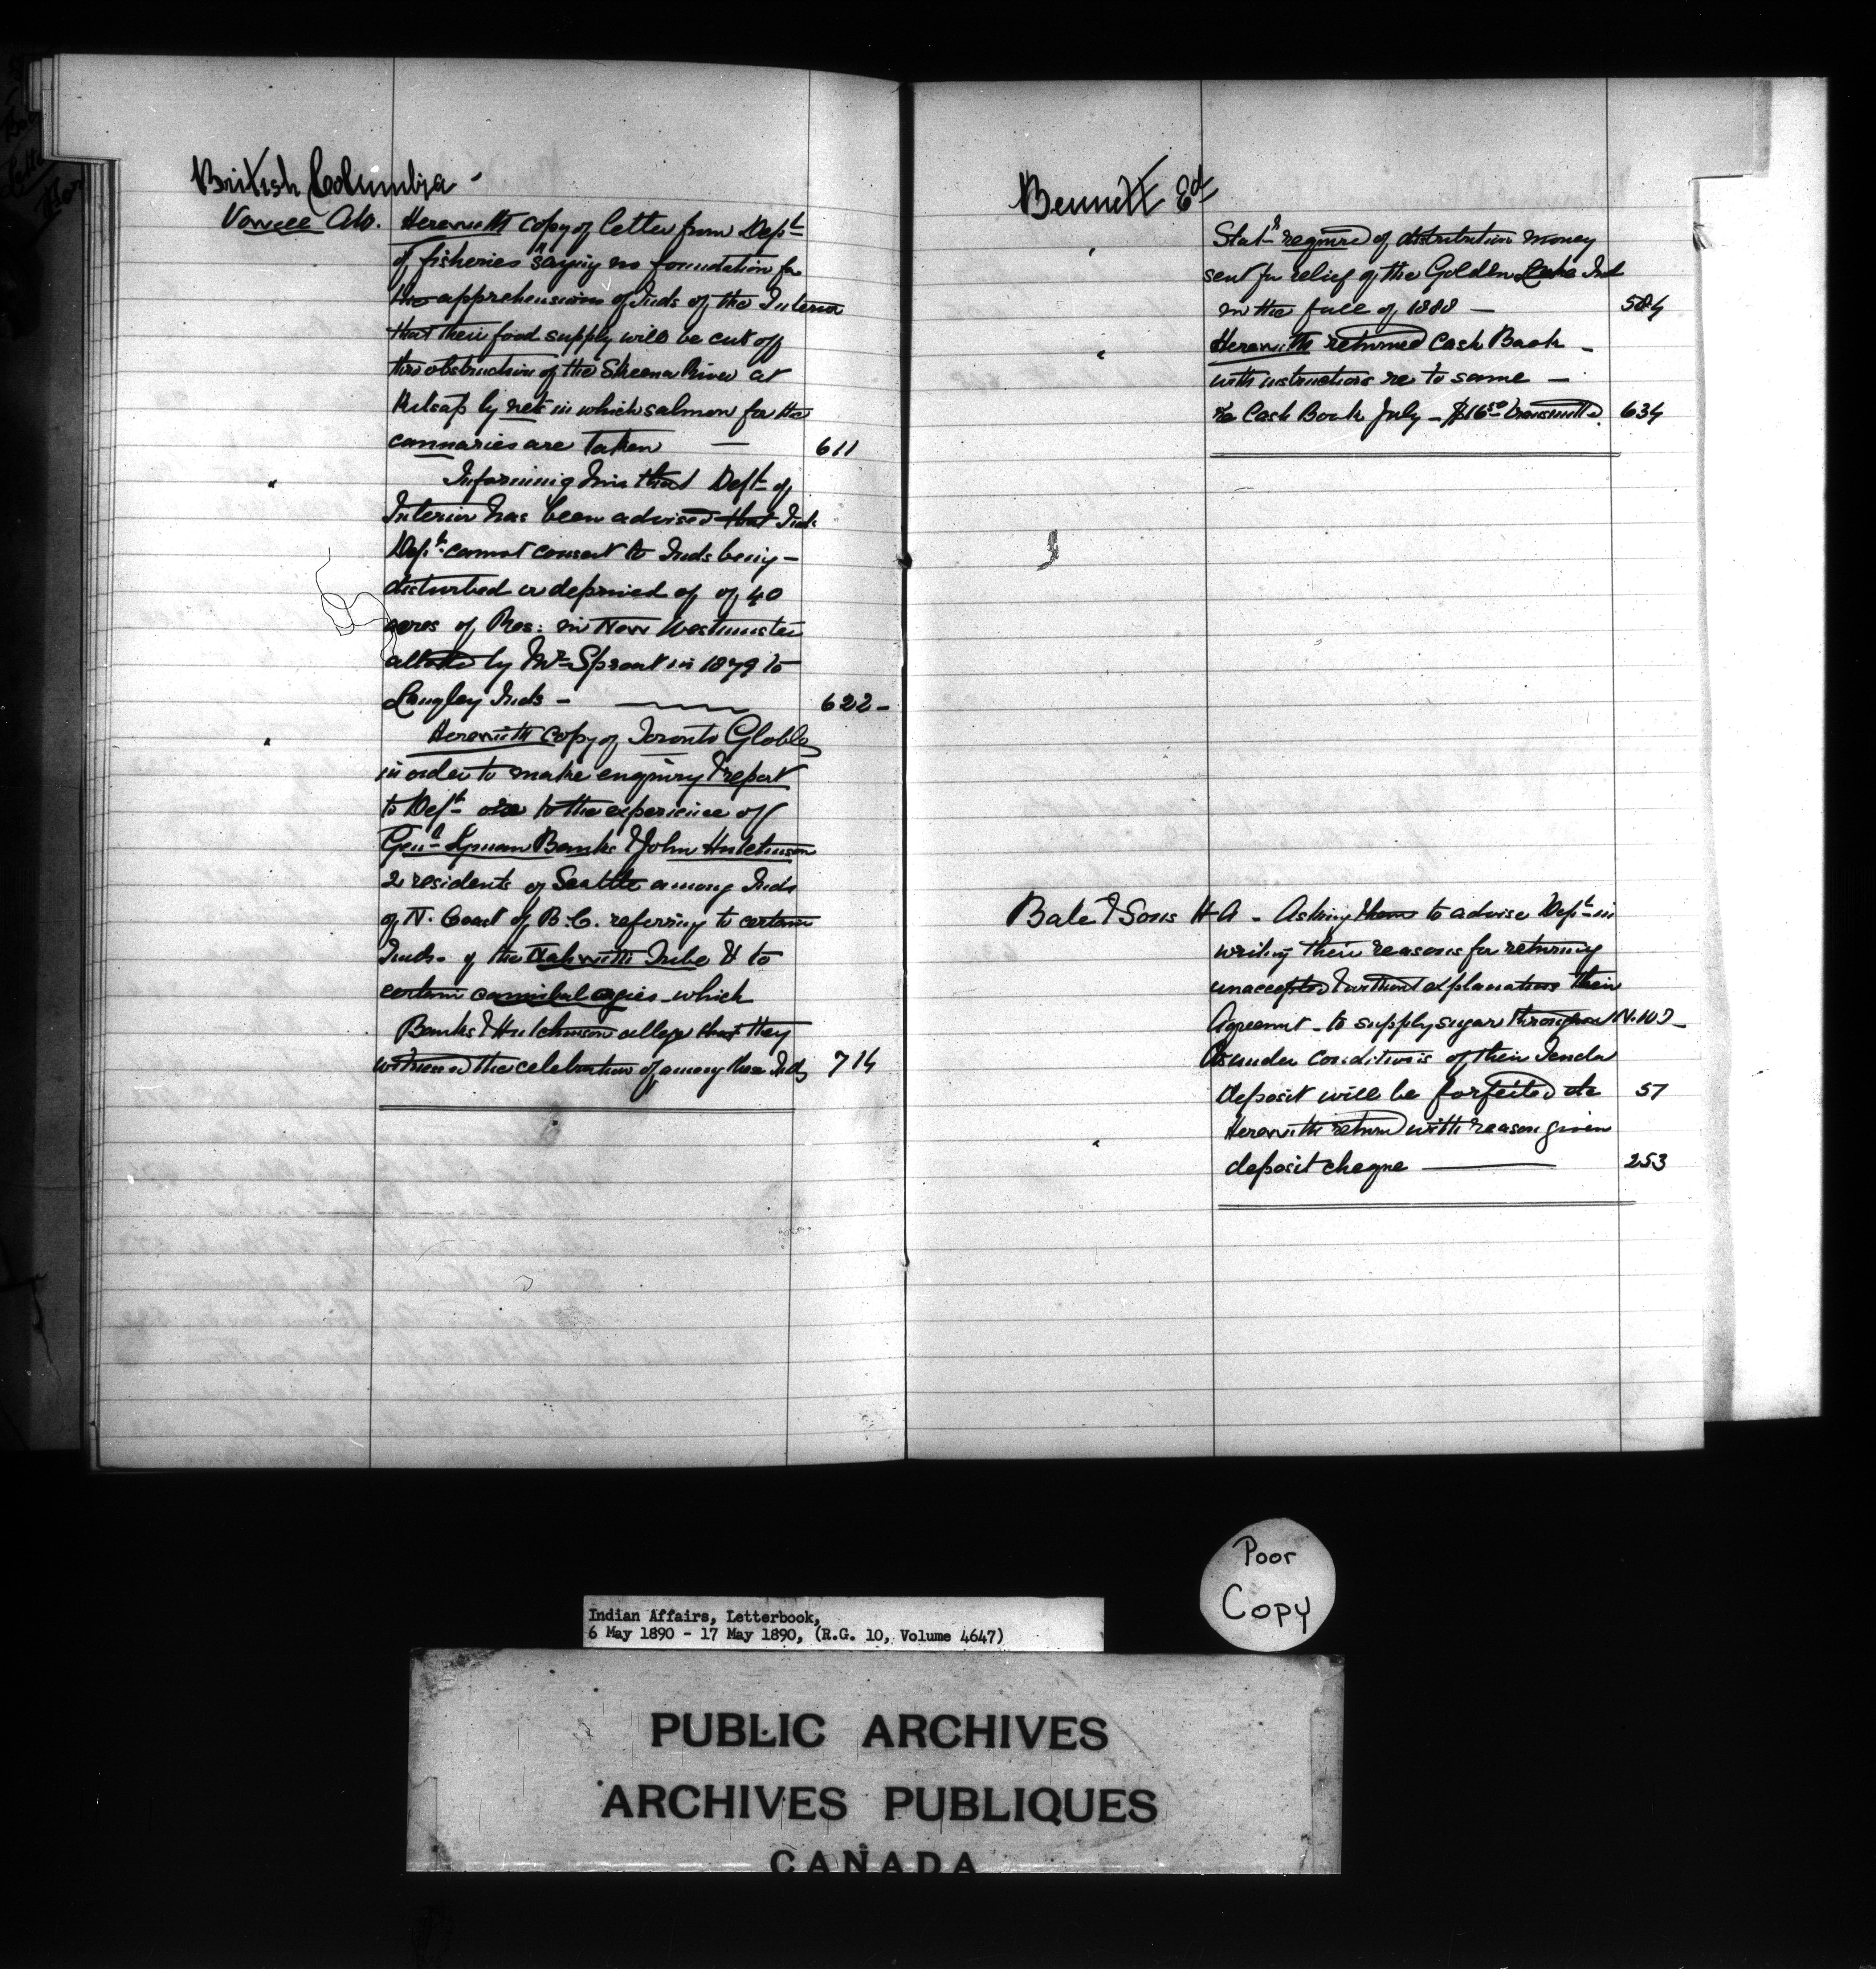 British Columbia -
Vowell A.W. Herewith copy of letter from Dept
of fisheries saying no foundation for
the apprehensions of Inds of the Interior
that their food supply will be cut off
thro obstruction of the Skeena River at
by nets in which salmon for the
cannaries are taken — 611
" Informing him that Dept of
Interior has been advised that Ind
Dept cannot consent to Inds being -
disturbed or deprived of of 40
acres of Res: in New Westminster
allotted by Mr Sproat in 1879 to
Langley Inds - 622 -
" Herewith copy of Toronto Globe
in order to make enquiry & report
to Dept to the experience of
Genl Lyman Banks & John Hutchinson
2 residents of Seattle among Inds
of N. Coast of B.C. referring to certain
Inds. of the Nahwitti Tribe & to
certain cannibal orgies which
Banks & Hutchinson allege that they
witnessed the celebration of among these Inds 714
Bennett Ed
" Statt required of distribution money
sent for relief of the Golden Lake Ind
in the fall of 1888 — 584
" Herewith returned Cash Book -
with instructions re to same —
re Cash Book July - $16.50 transmitted. 634
Bate & Sons H A - Asking them to advise Dept in
writing their reasons for returning
unaccepted & without explanations their
Agreemt - to supply sugar throughout N.W.T -
As under conditions of their Tender
deposit will be forfeited &c 57
" Herewith return with reason given
deposit cheque — 253
Poor
Copy
Indian Affairs, Letterbook,
6 May 1890 - 17 May 1890, (R.G. 10, Volume 4647)
PUBLIC ARCHIVES
ARCHIVES PUBLIQUES
CANADA